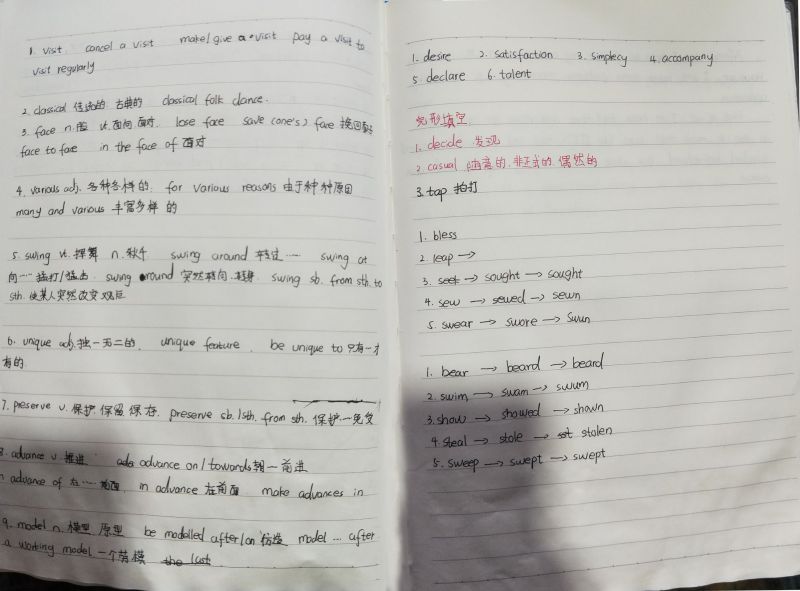 1. visit. cancel a visit make/give a visit pay a visit to
visit regularly
2. classical 传统的 古典的 classical folk dance.
3. face n.脸 vt.面向 面对. lose face save (one's) face 挽回面子
face to face in the face of 面对
4. various adj. 各种各样的. for various reasons 由于种种原因
many and various 丰富多样的
5. swing vt. 挥舞 n.秋千 swing around 转过…… swing at
向…… swing around 突然转向. 转身. swing sb. from sth. to
sth. 使某人突然改变观点
6. unique adj.独一无二的. unique feature. be unique to 只有一才
有的.
7. preserve v. 保护 保留 保存. preserve sb./sth. from sth. 保护一免受
8. advance v. 推进 advance on/towards 朝一前进
advance of 在……前面. in advance 在前面 make advances in
9. model n. 模型 原型 be modelled after/on 仿造 model ... after
a working model 一个劳模 the last
1. desire 2. satisfaction 3. simplecy 4. accompany
5 declare 6. talent
完形填空
1. decide 发现
2 casual 随意的.非正式的 偶然的
3. tap 拍打
1. bless
2. leap →
3. seek → sought → sought
4. sew → sewed → sewn
5. swear → swore → swun
1. bear → beard → beard
2. swim → swam → swum
3. show → showed → shown
4. steal → stole → stolen
5. sweep → swept → swept